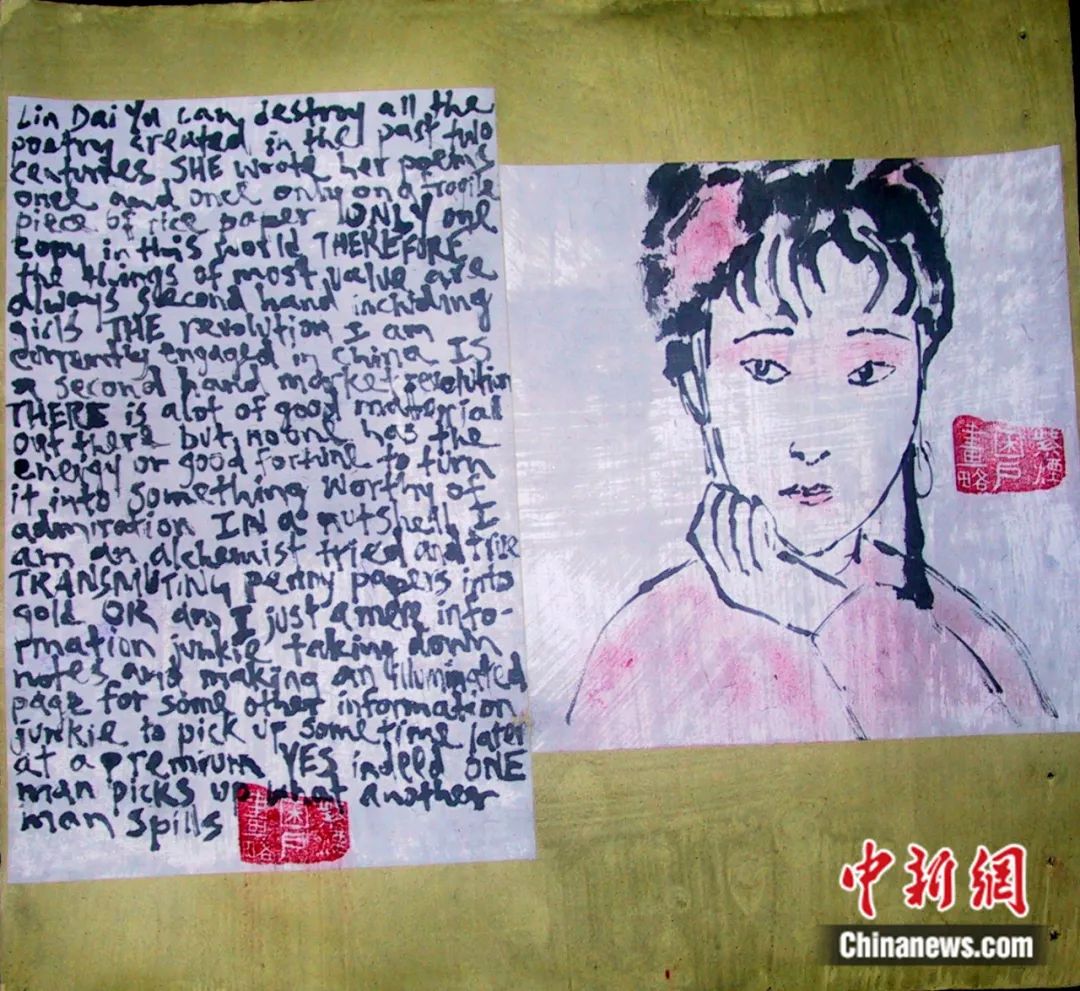 Lin Dai Yu can destroy all the
poetry created in the past two
centuries SHE wrote her poems
once and once only on a fragile
piece of rice paper ONLY one
copy in this world THEREFORE
the things of most value are
always second hand including
girls THE revolution I am
currently engaged in china IS
a second hand market revolution
THERE is alot of good material
out there but no one has the
energy or good fortune to turn
it into something worthy of
admiration IN a nutshell I
am an alchemist tried and true
TRANSMUTING penny papers into
gold OR am I just a mere info-
rmation junkie taking down
notes and making an illuminated
page for some other information
junkie to pick up sometime later
at a premium YES indeed ONE
man picks up what another
man spills
困户
中新網
Chinanews.com